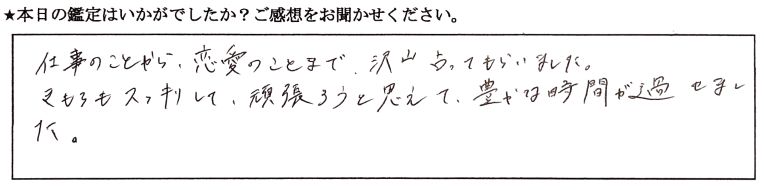 ★本日の鑑定はいかがでしたか？ご感想をお聞かせください。
仕事のことから、恋愛のことまで、沢山占ってもらいました。
きもちもスッキリして、頑張ろうと思えて、豊かな時間が過せまし
た。